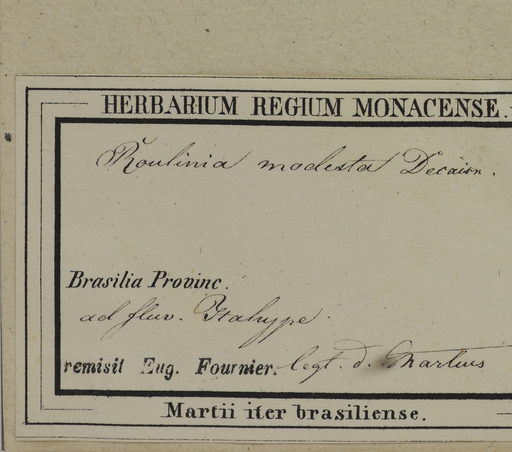 HERBARIUM REGIUM MONACENSE.
Roulinia modesta Decaisn.
Brasilia Provinc.
ad fluv. Itahype.
remisit Eug. Fournier. legt. d. Martius
Martii iter brasiliense.